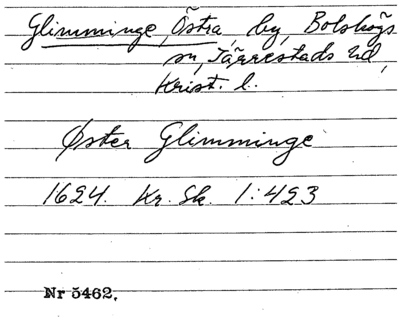 Glimminge, Östra, by, Bolshögs
sn, Järrestads hd,
Krist. l.
Øster Glimminge
1624. Kr. Sk. 1:423
Nr 5462.